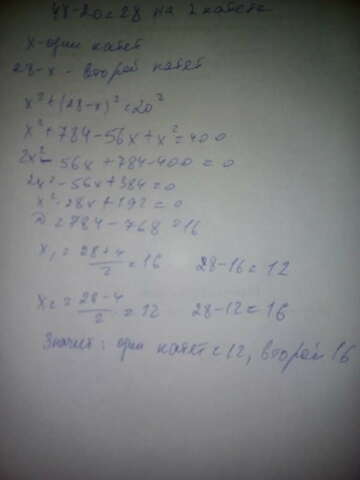 48-20=28 на 2 катета
x-один катет
28-x - второй катет
x²+(28-x)²=20²
x²+784-56x+x²=400
2x²-56x+784-400=0
2x²-56x+384=0
x²-28x+192=0
D=784-768=16
x₁=28+4/2=16 28-16=12
x₂=28-4/2=12 28-12=16
Значит: один катет=12, второй 16